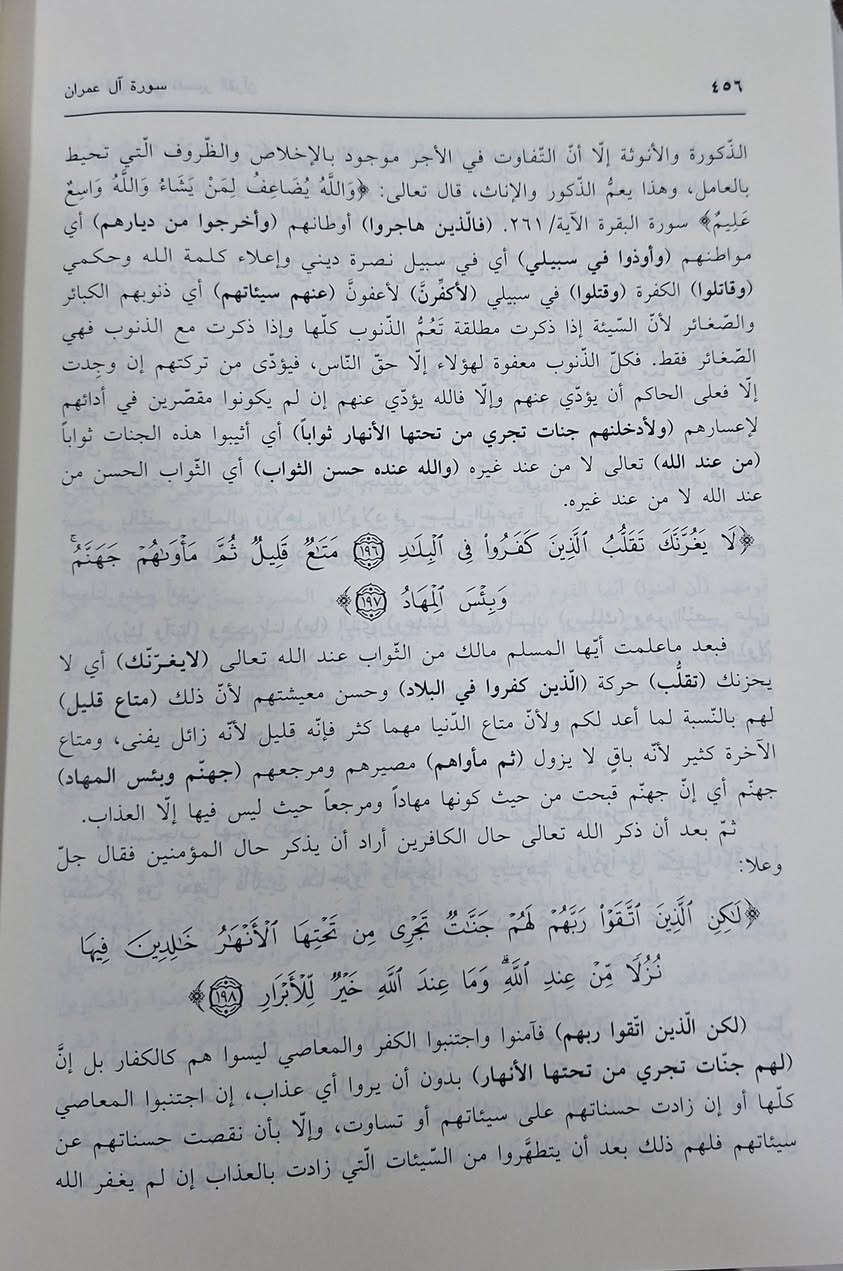 ٤٥٦ سورة آل عمران
الذّكورة والأنوثة إلّا أنّ التّفاوت في الأجر موجود بالإخلاص والظّروف الّتي تحيط
بالعامل، وهذا يعمُّ الذّكور والإناث، قال تعالى: ﴿وَاللَّهُ يُضَاعِفُ لِمَنْ يَشَاءُ وَاللَّهُ وَاسِعٌ
عَلِيمٌ﴾ سورة البقرة الآية/٢٦١. (فالّذين هاجروا) أوطانهم (وأخرجوا من ديارهم) أي
مواطنهم (وأوذوا في سبيلي) أي في سبيل نصرة ديني وإعلاء كلمة الله وحكمي
(وقاتلوا) الكفرة (وقتلوا) في سبيلي (لأكفّرنَّ) لأعفونَّ (عنهم سيئاتهم) أي ذنوبهم الكبائر
والصّغائر لأنّ السّيئة إذا ذكرت مطلقة تَعُمُّ الذّنوب كلّها وإذا ذكرت مع الذنوب فهي
الصّغائر فقط. فكلّ الذّنوب معفوة لهؤلاء إلّا حقّ النّاس، فيؤدّى من تركتهم إن وجِدت
إلّا فعلى الحاكم أن يؤدّي عنهم وإلّا فالله يؤدّي عنهم إن لم يكونوا مقصّرين في أدائهم
لإعسارهم (ولأدخلنهم جنات تجري من تحتها الأنهار ثواباً) أي أثيبوا هذه الجنات ثواباً
(من عند الله) تعالى لا من عند غيره (والله عنده حسن الثواب) أي الثّواب الحسن من
عند الله لا من عند غيره.
﴿لَا يَغُرَّنَّكَ تَقَلُّبُ ٱلَّذِينَ كَفَرُواْ فِى ٱلْبِلَٰدِ ١٩٦ مَتَٰعٌ قَلِيلٌ ثُمَّ مَأْوَىٰهُمْ جَهَنَّمُۚ
وَبِئْسَ ٱلْمِهَادُ ١٩٧﴾
فبعد ماعلمت أيّها المسلم مالك من الثّواب عند الله تعالى (لايغرّنّك) أي لا
يحزنك (تقلُّب) حركة (الّذين كفروا في البلاد) وحسن معيشتهم لأنّ ذلك (متاع قليل)
لهم بالنّسبة لما أعد لكم ولأنّ متاع الدّنيا مهما كثر فإنّه قليل لأنّه زائل يفنى، ومتاع
الآخرة كثير لأنّه باقٍ لا يزول (ثم مأواهم) مصيرهم ومرجعهم (جهنّم وبئس المهاد)
جهنّم أي إنّ جهنّم قبحت من حيث كونها مهاداً ومرجعاً حيث ليس فيها إلّا العذاب.
ثمّ بعد أن ذكر الله تعالى حال الكافرين أراد أن يذكر حال المؤمنين فقال جلّ
وعلا:
﴿لَٰكِنِ ٱلَّذِينَ ٱتَّقَوْاْ رَبَّهُمْ لَهُمْ جَنَّٰتٌ تَجْرِى مِن تَحْتِهَا ٱلْأَنْهَٰرُ خَٰلِدِينَ فِيهَا
نُزُلًا مِّنْ عِندِ ٱللَّهِۗ وَمَا عِندَ ٱللَّهِ خَيْرٌ لِّلْأَبْرَارِ ١٩٨﴾
(لكن الّذين اتّقوا ربهم) فآمنوا واجتنبوا الكفر والمعاصي ليسوا هم كالكفار بل إنَّ
(لهم جنّات تجري من تحتها الأنهار) بدون أن يروا أي عذاب، إن اجتنبوا المعاصي
كلّها أو إن زادت حسناتهم على سيئاتهم أو تساوت، وإلّا بأن نقصت حسناتهم عن
سيئاتهم فلهم ذلك بعد أن يتطهَّروا من السّيئات الّتي زادت بالعذاب إن لم يغفر الله